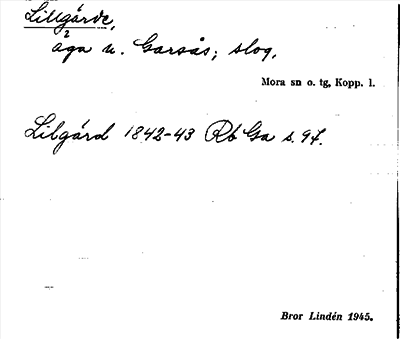 Lillgärde,
2
äga n. Garsås; slog.
Mora sn o. tg, Kopp. l.
Lilgärd 1842-43 Rb Ga s. 97.
Bror Lindén 1945.